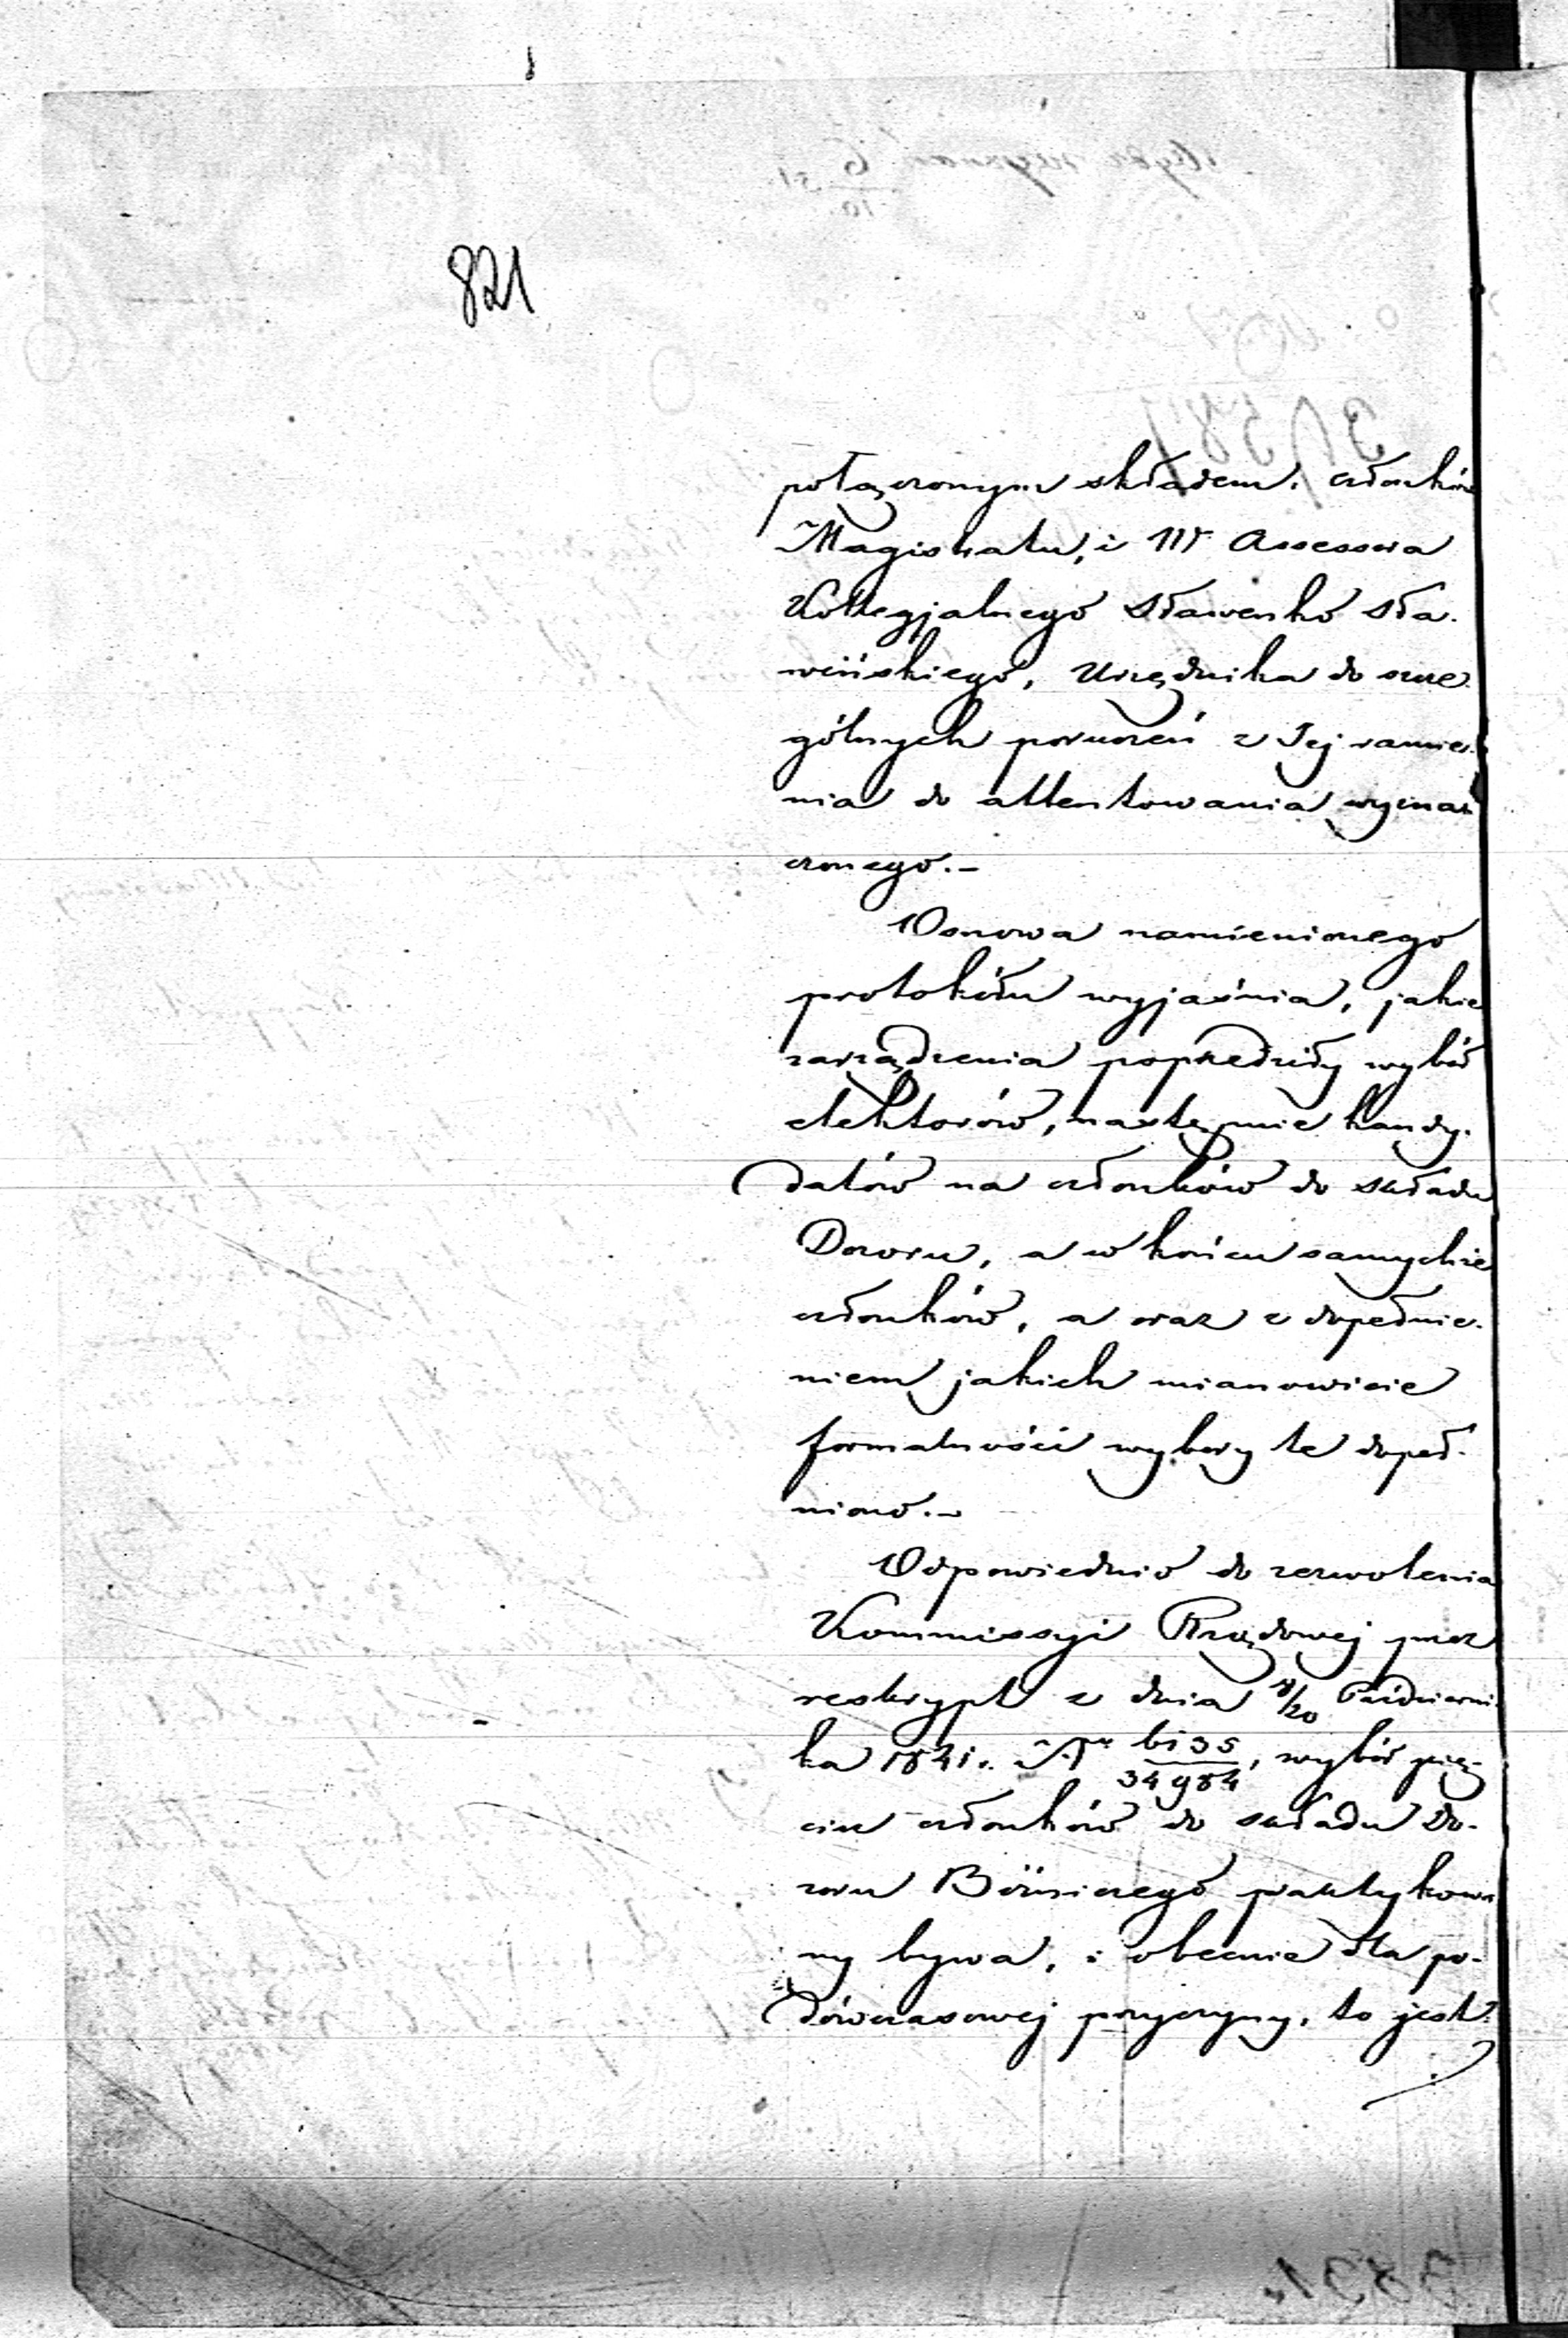 821
połączonym składem, członków
Magistratu, i W Assessora
Kollegjalnego Sławenko Sła-
wińskiego, Urzędnika do szcze-
gólnych poruczeń z Jej ramie-
nia do attentowania wyznac
czonego.-
Osnowa namienionego
protokółu wyjaśnia, jakie
zarządzenia poprzedziły wybór
elektorów, następnie kandy-
datów na członków do składu
Dozoru, a w końcu samychże
członków, a oraz z dopełnie-
niem jakich mianowicie
formalności wybory te dopeł-
niono.-
Odpowiednio do zezwolenia
Kommissyi Rządowej przez
reskrypt z dnia 8/20 Październi-
ka 1841 r. Nr 6135/34984, wybór pię-
ciu członków do składu Do-
zoru Bóżniczego praktykowa
ny bywa, i obecnie dla po-
dówczasowej przyczyny, to jest